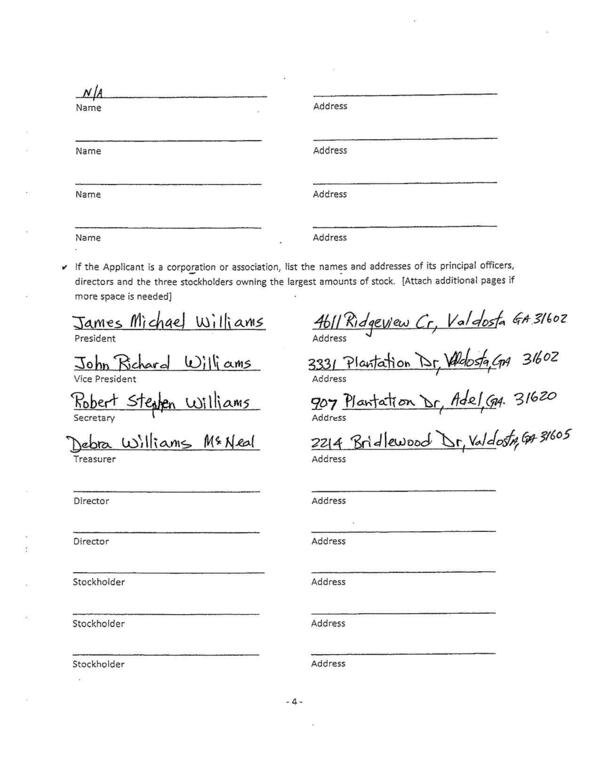 N/A
Name Address
Name Address
Name Address
Name Address
✔ If the Applicant is a corporation or association, list the names and addresses of its principal officers,
directors and the three stockholders owning the largest amounts of stock. [Attach additional pages if
more space is needed]
James Michael Williams 4611 Ridgeview Cr, Valdosta GA 31602
President Address
John Richard Williams 3331 Plantation Dr, Valdosta, GA 31602
Vice President Address
Robert Stephen Williams 907 Plantation Dr, Adel, GA. 31620
Secretary Address
Debra Williams McNeal 2214 Bridlewood Dr, Valdosta, GA 31605
Treasurer Address
Director Address
Director Address
Stockholder Address
Stockholder Address
Stockholder Address
- 4 -